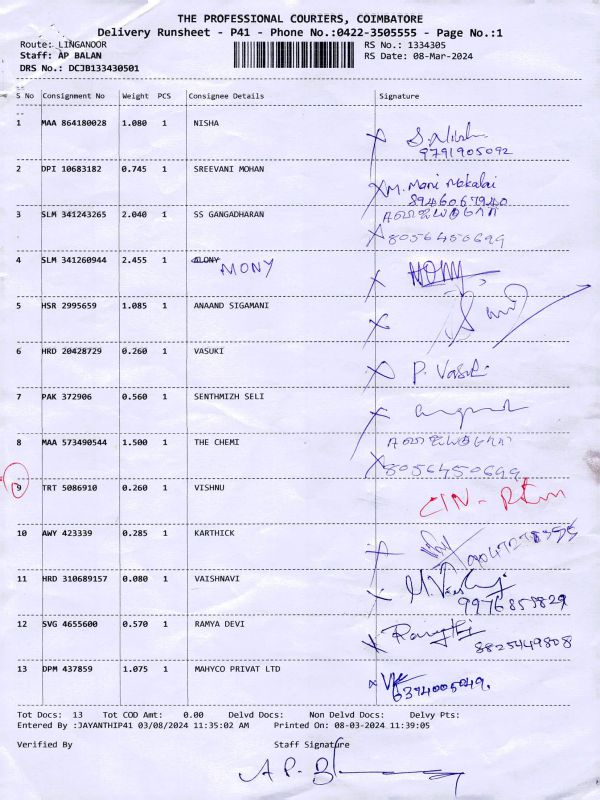 THE PROFESSIONAL COURIERS, COIMBATORE
Delivery Runsheet - P41 - Phone No.:0422-3505555 - Page No.:1
Route: LINGANOOR RS No.: 1334305
Staff: AP BALAN RS Date: 08-Mar-2024
DRS No.: DCJB133430501
S No Consignment No Weight PCS Consignee Details Signature
1 MAA 864180028 1.080 1 NISHA
9791905092
2 DPI 10683182 0.745 1 SREEVANI MOHAN M. Mani Mekalai
8946067940
3 SLM 341243265 2.040 1 SS GANGADHARAN
8056450699
4 SLM 341260944 2.455 1 MONY MONY
5 HSR 2995659 1.085 1 ANAAND SIGAMANI
6 HRD 20428729 0.260 1 VASUKI P. Vasuki
7 PAK 372906 0.560 1 SENTHMIZH SELI
8 MAA 573490544 1.500 1 THE CHEMI
8056450699
9 TRT 5086910 0.260 1 VISHNU
10 AWY 423339 0.285 1 KARTHICK
11 HRD 310689157 0.080 1 VAISHNAVI
9976855829
12 SVG 4655600 0.570 1 RAMYA DEVI
8825449808
13 DPM 437859 1.075 1 MAHYCO PRIVAT LTD
6394005049.
Tot Docs: 13 Tot COD Amt: 0.00 Delvd Docs: Non Delvd Docs: Delvy Pts:
Entered By :JAYANTHIP41 03/08/2024 11:35:02 AM Printed On: 08-03-2024 11:39:05
Verified By Staff Signature